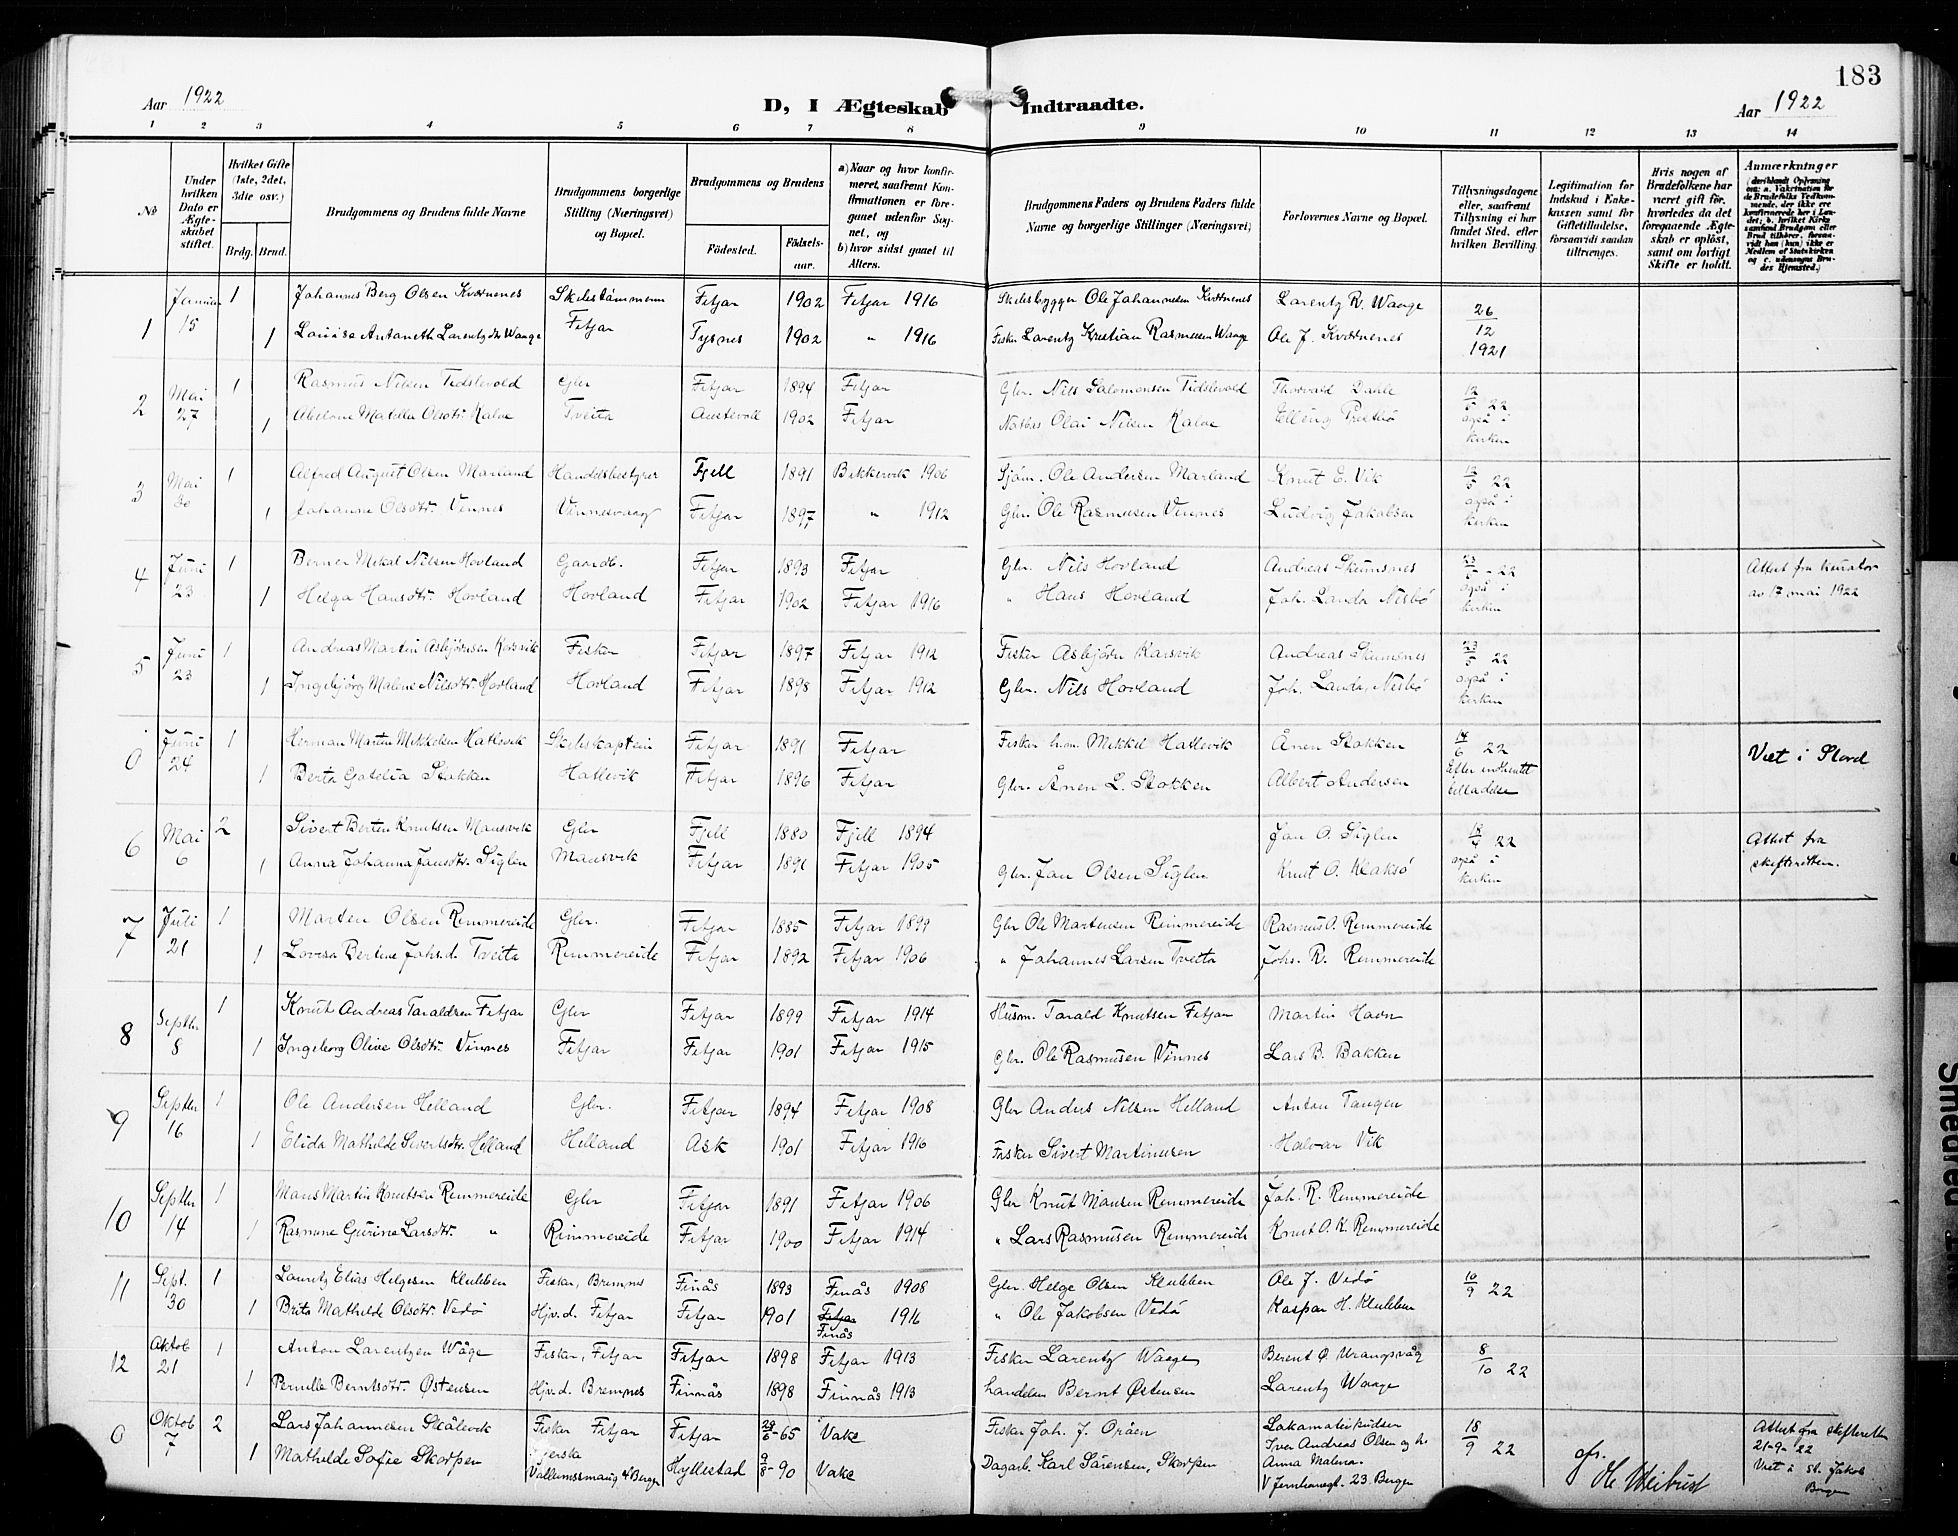 183
Aar 1922
D, I Ægteskab Indtraadte.
Aar 1922
1 2 3 4 5 6 7 8 9 10 11 12 13 14
No
Under hvilken Dato er Ægteskabet stiftet.
Hvilket Gifte (1ste, 2det, 3die osv.)
Brdg. Brud.
Brudgommens og Brudens fulde Navne
Brudgommens borgerlige Stilling (Næringsvei) og Bopæl.
Brudgommens og Brudens
Fødested. Fødselsaar.
a) Naar og hvor konfirmeret, saafremt Konfirmationen er foregaaet udenfor Sognet, og
b) hvor sidst gaaet til Alters.
Brudgommens Faders og Brudens Faders fulde Navne og borgerlige Stillinger (Næringsvei)
Forlovernes Navne og Bopæl.
Tillysningsdagene eller, saafremt Tillysning ei har fundet Sted, efter hvilken Bevilling.
Legitimation for Indskud i Enkekassen samt for Giftetilladelse, forsaavidt saadan tiltrænges.
Hvis nogen af Brudefolkene har været gift før, hvorledes da det foregaaende Ægteskab er opløst, samt om lovligt Skifte er holdt.
Anmærkninger
1 Januar 15 1 Johannes Berg Olsen Kvernenes Skibstømmerm Fitjar 1902 Fitjar 1916 Skibsbygger Ole Johannesen Kvernenes Larentz R. Waage 26/12 1921
1 Lovise Antoneth Larentzdtr Waage Fitjar Tysnes 1902 " 1916 Fisker Larentz Kristian Rasmussen Waage Ole J. Kvernenes
2 Mai 27 1 Rasmus Nilsen Tidslevold Gbr Fitjar 1894 Fitjar Gbr. Nils Salomonsen Tidslevold Thorvald Dahle 12/5 22
1 Abelone Olsdtr. Kalve Tveita Austevoll 1902 Fitjar Olai Nilsen Kalve Elling også i kirken
3 Mai 1 Alfred August Olsen Marland Handelsbestyrer Fjell 1891 Bekkervik 1906 Sjöm. Ole Andersen Marland Knut E. Vik 22
1 Johanne Olsdtr. Vinnes Vinnesvaag Fitjar 1897 " 1912 Gbr. Ole Rasmussen Vinnes Ludvig Jakobsen også i kirken
4 Juni 23 1 Berner Mikal Nilsen Hovland Gaardb. Fitjar 1893 Fitjar Gbr. Nils Hovland Andreas Skumsnes 23/5 - 22 Attest fra kurator
1 Helga Hansdtr. Hovland Hovland Fitjar 1902 Fitjar 1916 " Hans Hovland Joh. Landa, Nesbö også i kirken av 17 mai 1922
5 Juni 23 1 Andreas Martin Asbjörnsen Korsvik Fisker Fitjar 1897 Fitjar 1912 Fisker Asbjörn Karsvik Andreas Skumsnes 23/5 22
1 Ingebjörg Malene Nilsdtr. Hovland Hovland Fitjar 1898 Fitjar 1912 Gbr. Nils Hovland Joh. Landa, Nesbö også i kirken
0 Juni 24 1 Herman Martin Mikkelsen Hatlevik Skibskaptein Fitjar 1891 Fitjar Fisker h.m. Mikkel Hatlevik Ånen Stokken 14/6 22 Viet i Stord
1 Berta Stokken Hatlevik Fitjar 1896 Fitjar Gbr. Ånen L. Stokken Albert Andersen Efter indhentet tilladelse
6 Mai 6 2 Sivert Berten Knutsen Mansvik Gbr Fjell 1880 Fjell 1894 Jan O. Siglen 18/4 22 Attest fra
1 Anna Johanna Jansdtr. Siglen Mansvik Fitjar 1891 Fitjar 1905 Gbr. Jan Olsen Siglen Knut O. Klaksö også i kirken skifteretten.
7 Juli 21 1 Marten Olsen Remmereide Gbr. Fitjar 1885 Fitjar 1899 Gbr Ole Martensen Reimmereide Rasmus O. Remmereide
1 Lovisa Bertine Johs.d. Tveita Remmereide Fitjar 1892 Fitjar 1906 " Johannes Larsen Tveita Johs. R. Remmereide
8 Septbr 8 1 Knut Andreas Taraldsen Fitjar Gbr Fitjar 1899 Fitjar 1914 Husm. Tarald Knutsen Fitjar Martin Havn
1 Ingeborg Olive Olsdtr. Vinnes Fitjar Fitjar 1901 Fitjar 1915 Gbr. Ole Rasmussen Vinnes Lars B. Bakken
9 Septbr 16 1 Ole Andersen Helland Gbr. Fitjar 1894 Fitjar 1908 Gbr Anders Nilsen Helland Anton Tangen
1 Elida Mathilde Sivertsdtr. Helland Helland Ask 1901 Fitjar 1916 Fisker Sivert Martinusen Halvar Vik
10 Septbr 14 1 Mons Martin Knutsen Remmereide Gbr Fitjar 1891 Fitjar 1906 Gbr Knut Monsen Remmereide Joh. R. Remmereide
1 Rasmine Gurine Larsdtr. " Rimmereide Fitjar 1900 Fitjar 1914 " Lars Rasmusen Remmereide Knut O. K. Remmereide
11 Sept. 30 1 Lauritz Elias Helgesen Klubben Fisker, Bremnes Finås 1893 Finås 1908 Gbr. Helge Olsen Klubben Ole J. Vedö 10/9 22
1 Brita Mathilde Olsdtr. Vedö Hjv.d. Fitjar Fitjar 1901 Fitjar Finås 1916 " Ole Jakobsen Vedö Kaspar H. Klubben
12 Oktob 21 1 Anton Larentzen Wåge Fisker, Fitjar Fitjar 1898 Fitjar 1913 Fisker Larentz Waage Berent Ø. Urangsvåg 8/10 22
1 Pernille Berntsdtr. Østensen Hjv.d. Bremnes Finnås 1898 Finnås 1913 Landelm Bernt Østensen Larentz Waage
0 Oktob 7 2 Lars Johannesen Skålevik Fisker Fitjar Fitjar 29/6-65 Vake Fisker Joh. J. Oråen Lokomativpudser Iver Andreas Olsen og h. 18/9 22 Attest fra skifteretten 21-9-22
1 Mathilde Sofie Skorpen Vallumssmaug 4 Bergen Hyllestad 9/8-90 Vake Dagarb. Karl Sörensen, Skorpen Anna Malena. V Jernbanegt. 23. Bergen Viet i St. Jakob Bergen